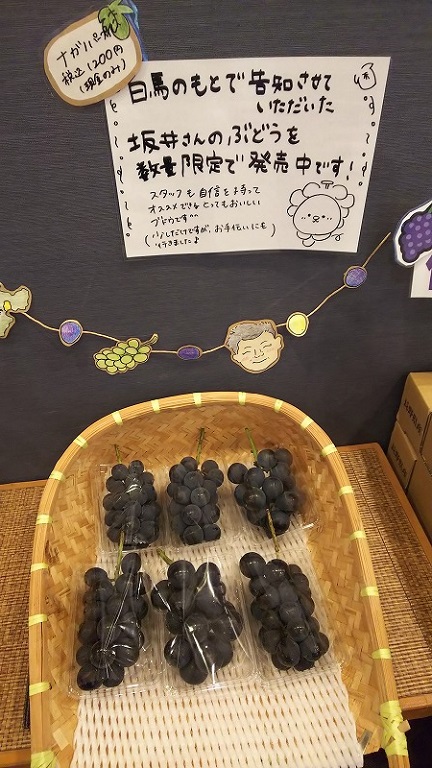 ナガノパープル
税込1200円
(現金のみ)
白馬のもとで告知させて
いただいた
坂井さんのぶどうを
数量限定で発売中です!
スタッフも自信を持って
オススメできるとってもおいしい
ブドウです^^
(少しだけですが、お手伝いにも
行きました♪)